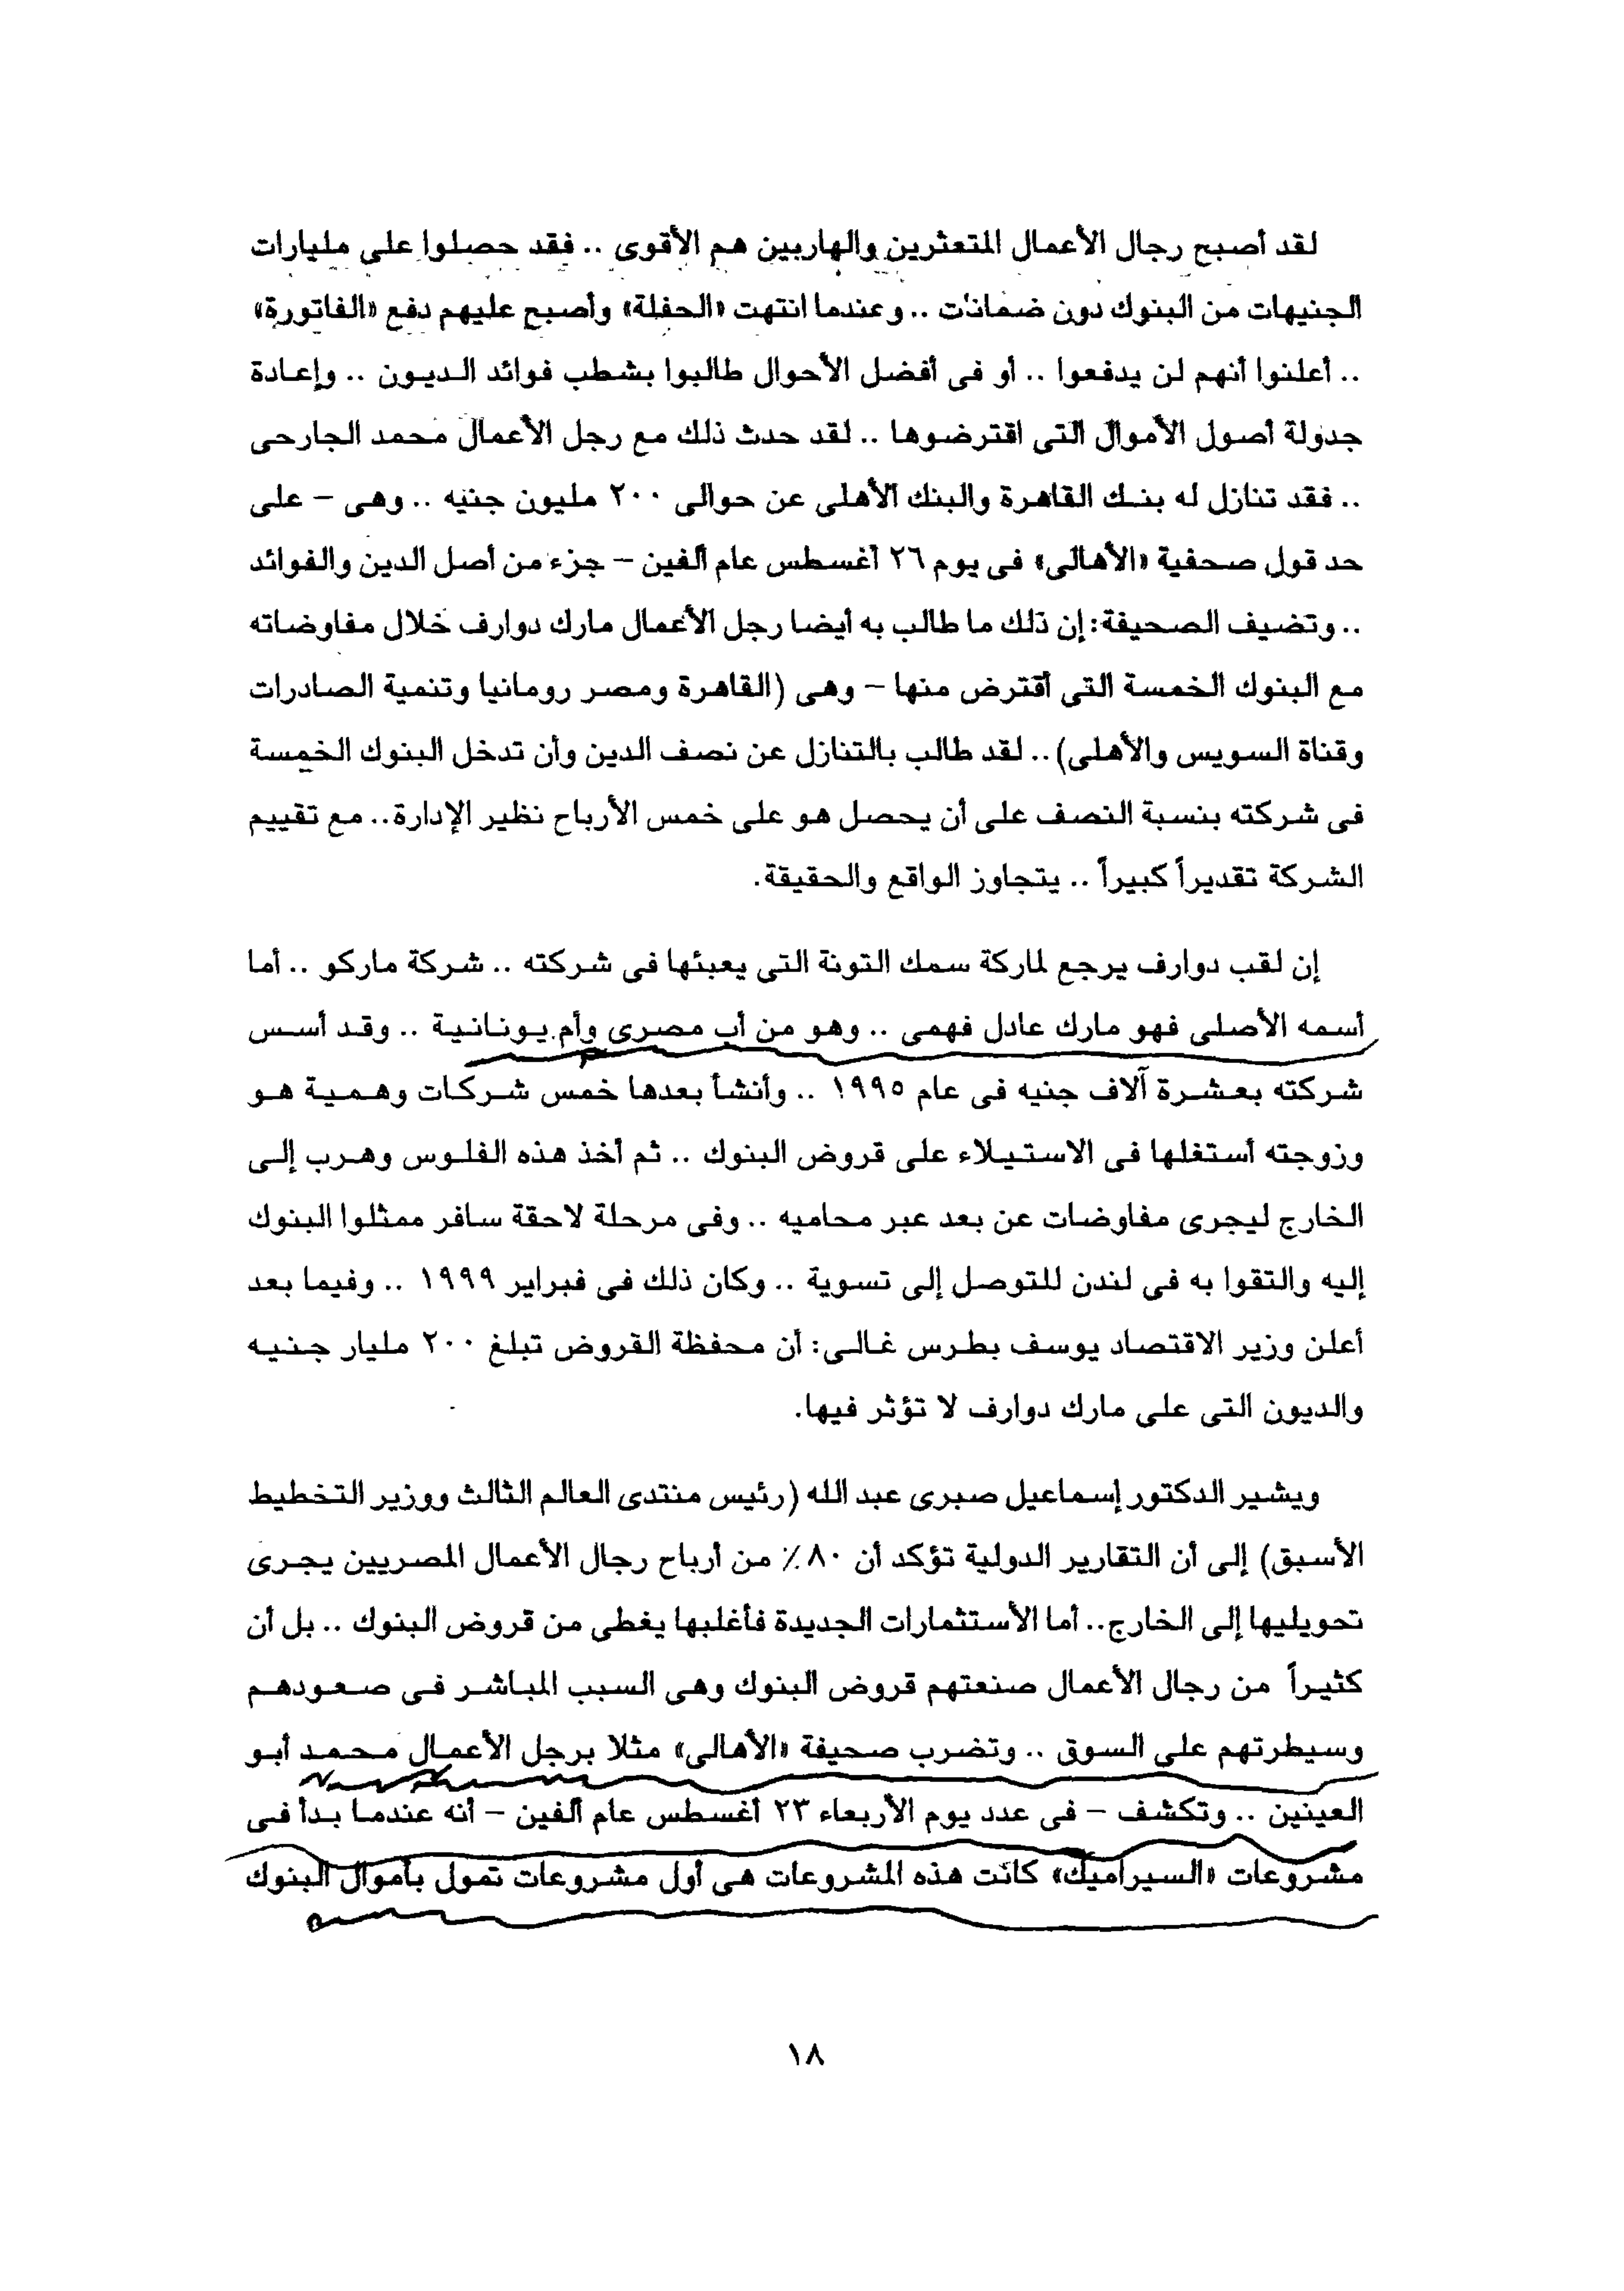 لقد أصبح رجال الأعمال المتعثرين والهاربين هم الأقوى .. فقد حصلوا على مليارات
الجنيهات من البنوك دون ضمانات .. وعندما انتهت «الحفلة» وأصبح عليهم دفع «الفاتورة»
.. أعلنوا أنهم لن يدفعوا .. أو فى أفضل الأحوال طالبوا بشطب فوائد الديون .. وإعادة
جدولة أصول الأموال التى اقترضوها .. لقد حدث ذلك مع رجل الأعمال محمد الجارحى
.. فقد تنازل له بنك القاهرة والبنك الأهلى عن حوالى ٢٠٠ مليون جنيه .. وهى – على
حد قول صحفية «الأهالى» فى يوم ٢٦ أغسطس عام ألفين – جزء من أصل الدين والفوائد
.. وتضيف الصحيفة: إن ذلك ما طالب به أيضا رجل الأعمال مارك دوارف خلال مفاوضاته
مع البنوك الخمسة التى أقترض منها – وهى (القاهرة ومصر رومانيا وتنمية الصادرات
وقناة السويس والأهلى) .. لقد طالب بالتنازل عن نصف الدين وأن تدخل البنوك الخمسة
فى شركته بنسبة النصف على أن يحصل هو على خمس الأرباح نظير الإدارة.. مع تقييم
الشركة تقديراً كبيراً .. يتجاوز الواقع والحقيقة.
إن لقب دوارف يرجع لماركة سمك التونة التى يعبئها فى شركته .. شركة ماركو .. أما
أسمه الأصلى فهو مارك عادل فهمى .. وهو من أب مصرى وأم يونانية .. وقد أسس
شركته بعشرة آلاف جنيه فى عام ١٩٩٥ .. وأنشأ بعدها خمس شركات وهمية هو
وزوجته أستغلها فى الاستيلاء على قروض البنوك .. ثم أخذ هذه الفلوس وهرب إلى
الخارج ليجرى مفاوضات عن بعد عبر محاميه .. وفى مرحلة لاحقة سافر ممثلوا البنوك
إليه والتقوا به فى لندن للتوصل إلى تسوية .. وكان ذلك فى فبراير ١٩٩٩ .. وفيما بعد
أعلن وزير الاقتصاد يوسف بطرس غالى: أن محفظة القروض تبلغ ٢٠٠ مليار جنيه
والديون التى على مارك دوارف لا تؤثر فيها.
ويشير الدكتور إسماعيل صبرى عبد الله (رئيس منتدى العالم الثالث ووزير التخطيط
الأسبق) إلى أن التقارير الدولية تؤكد أن ٨٠٪ من أرباح رجال الأعمال المصريين يجرى
تحويليها إلى الخارج.. أما الأستثمارات الجديدة فأغلبها يغطى من قروض البنوك .. بل أن
كثيراً من رجال الأعمال صنعتهم قروض البنوك وهى السبب المباشر فى صعودهم
وسيطرتهم على السوق .. وتضرب صحيفة «الأهالى» مثلا برجل الأعمال محمد أبو
العينين .. وتكشف – فى عدد يوم الأربعاء ٢٣ أغسطس عام ألفين – أنه عندما بدأ فى
مشروعات «السيراميك» كانت هذه المشروعات هى أول مشروعات تمول بأموال البنوك
١٨